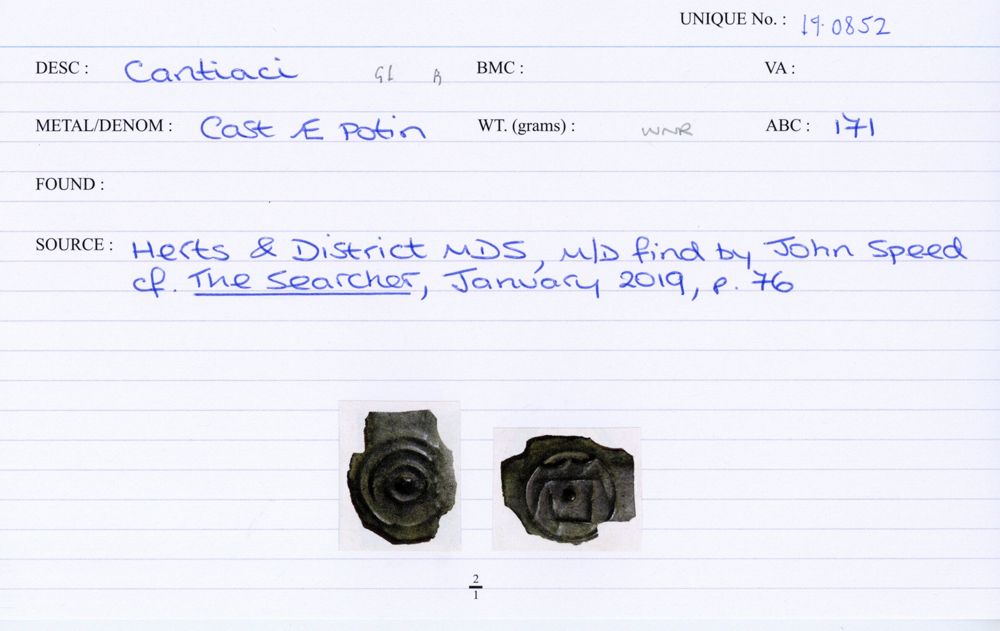 UNIQUE No. : 19.0852
DESC : Cantiaci GL B BMC : VA :
METAL/DENOM : Cast Æ Potin WT. (grams) : WNR ABC : 171
FOUND :
SOURCE : Herts & District MDS, M/D find by John Speed
cf. The Searcher, January 2019, p. 76
2
1